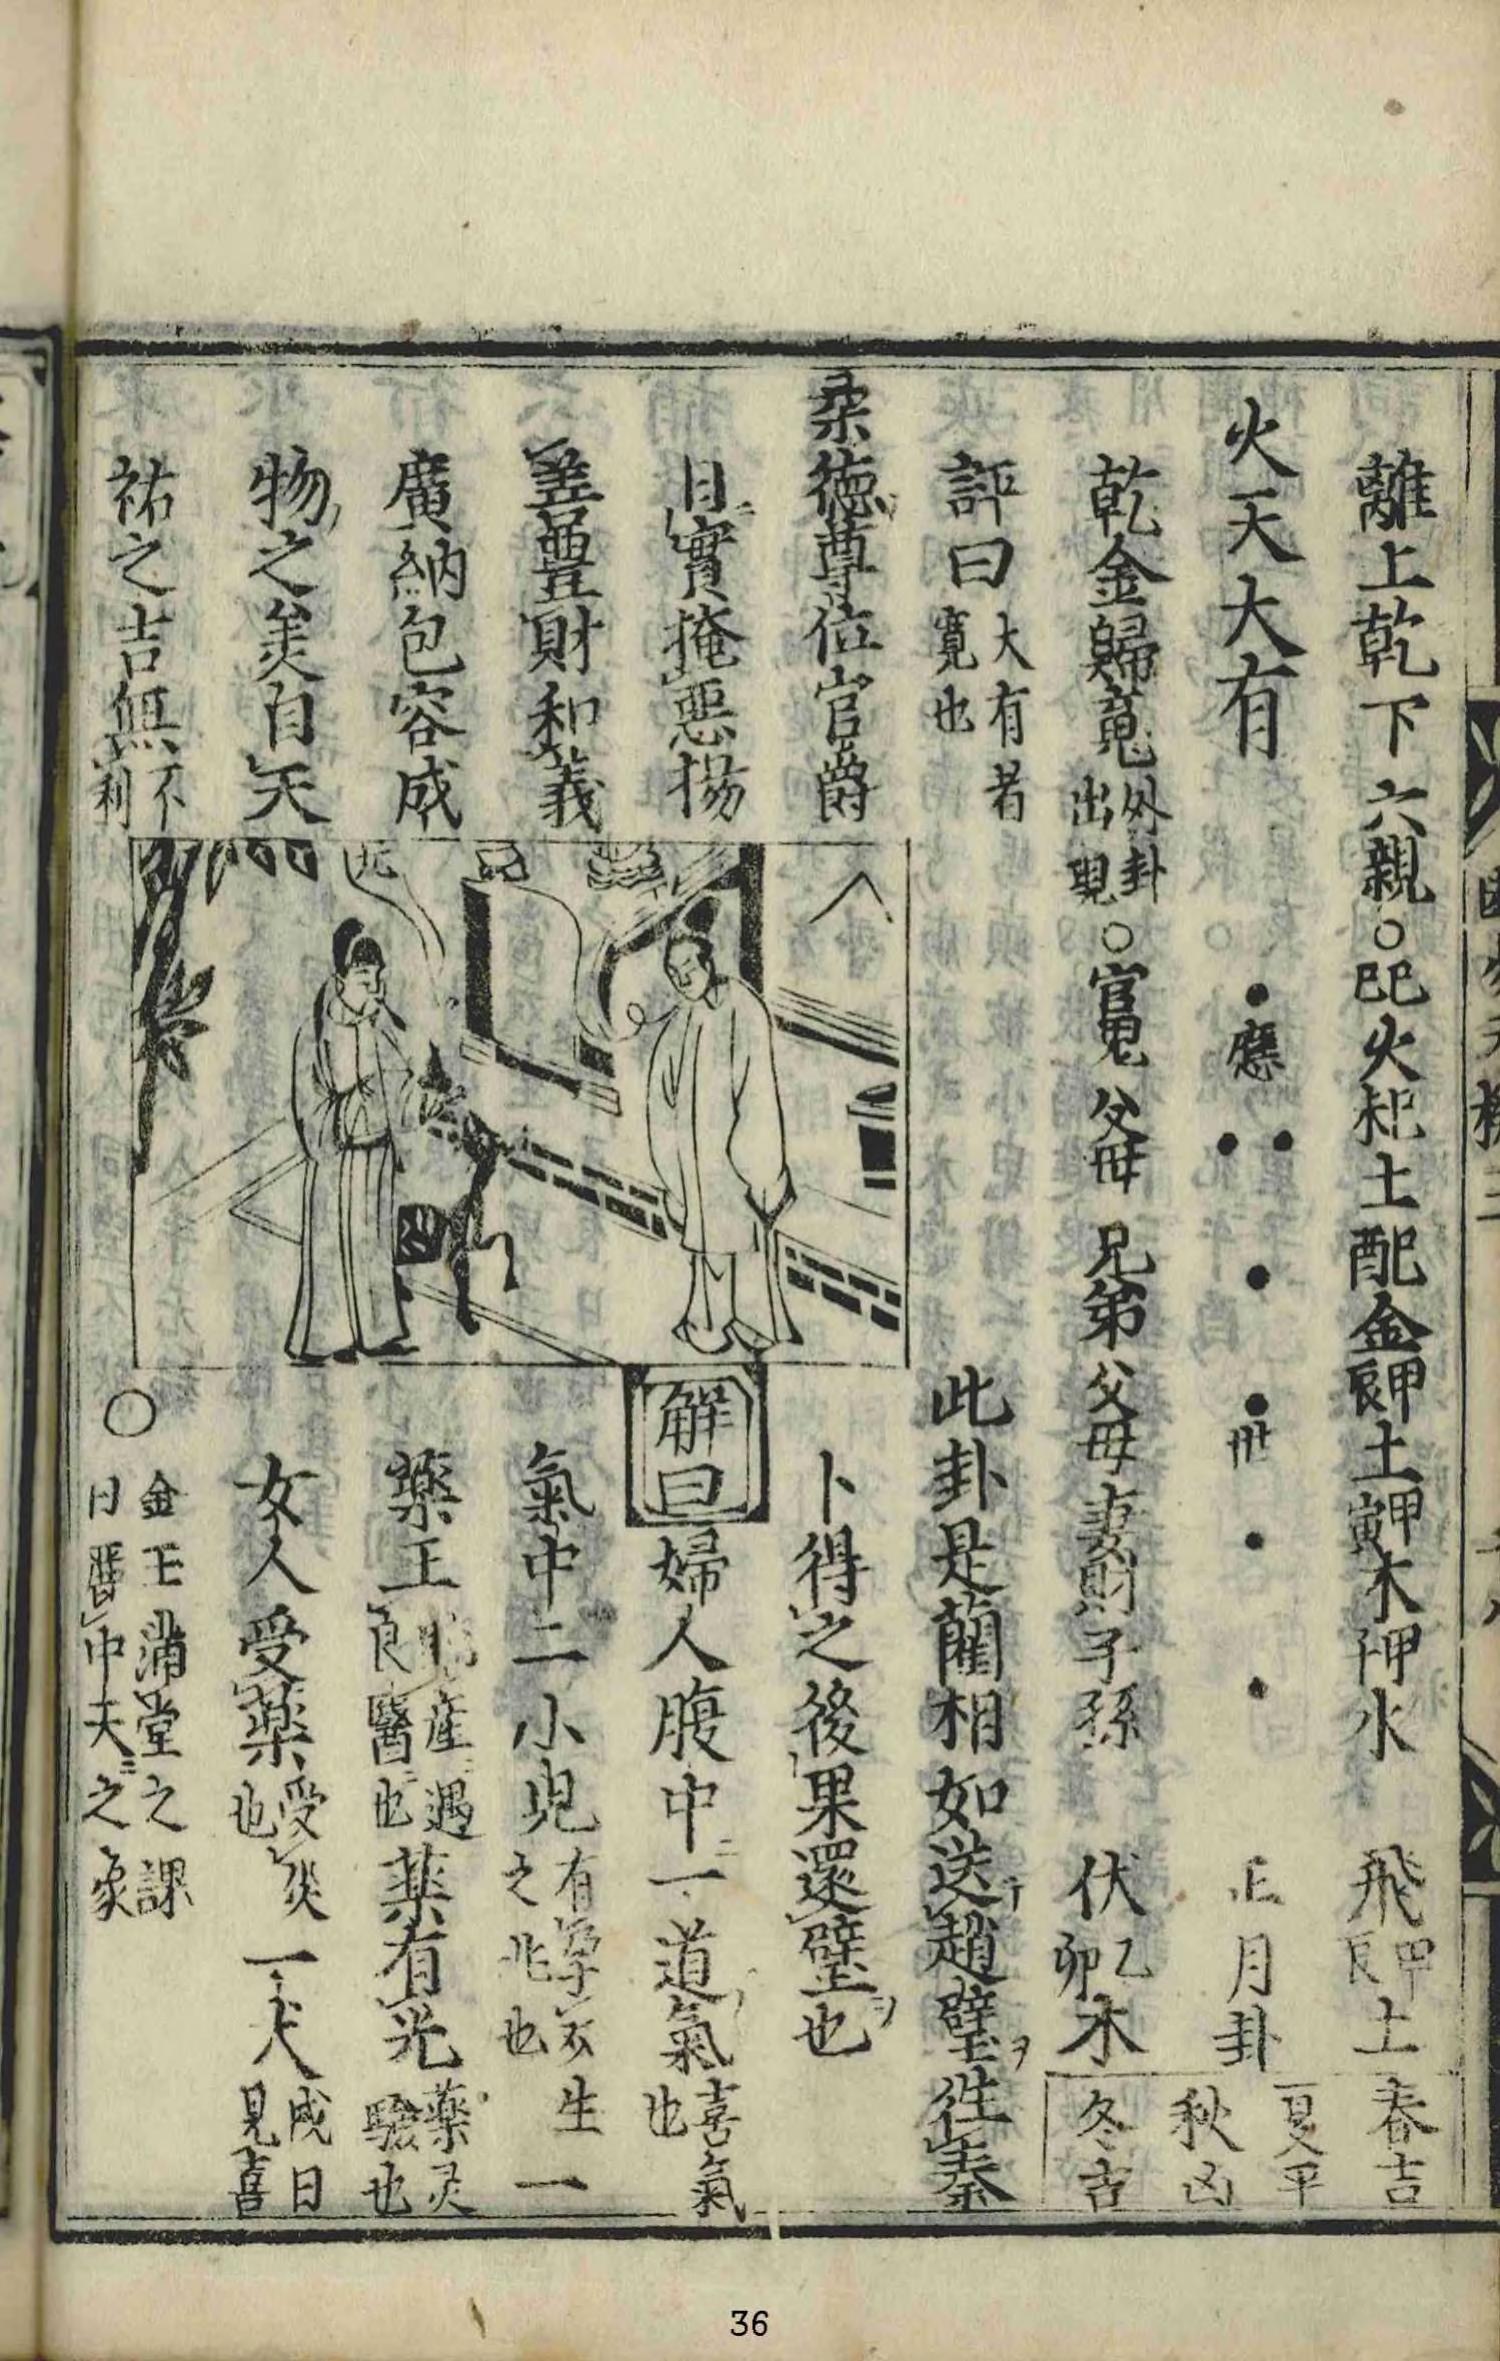 離上乾下六親○巳巳火未巳土酉巳金辰甲土寅甲木子甲水 飛辰甲土 春吉
火天大有 應 世 正月卦 夏平 秋凶
乾金歸䰟外卦出現○官鬼 父母 兄弟 父母 妻財 子孫 伏乙卯木 冬吉
評曰大有者寬也 此卦是藺相如送趙璧徃秦
卜得之後果還璧也
柔德尊位官爵
日實掩惡揚
善豐財和義
廣納包容成
物之美自天
祐之吉無不利
解曰婦人腹中一道氣喜氣也
氣中二小兒有孕欲生之兆也 一
藥王臨產遇良醫也藥有光藥灵驗也
女人受藥受災也一犬成日見喜
○金玉滿堂之課日麗中天之象
36